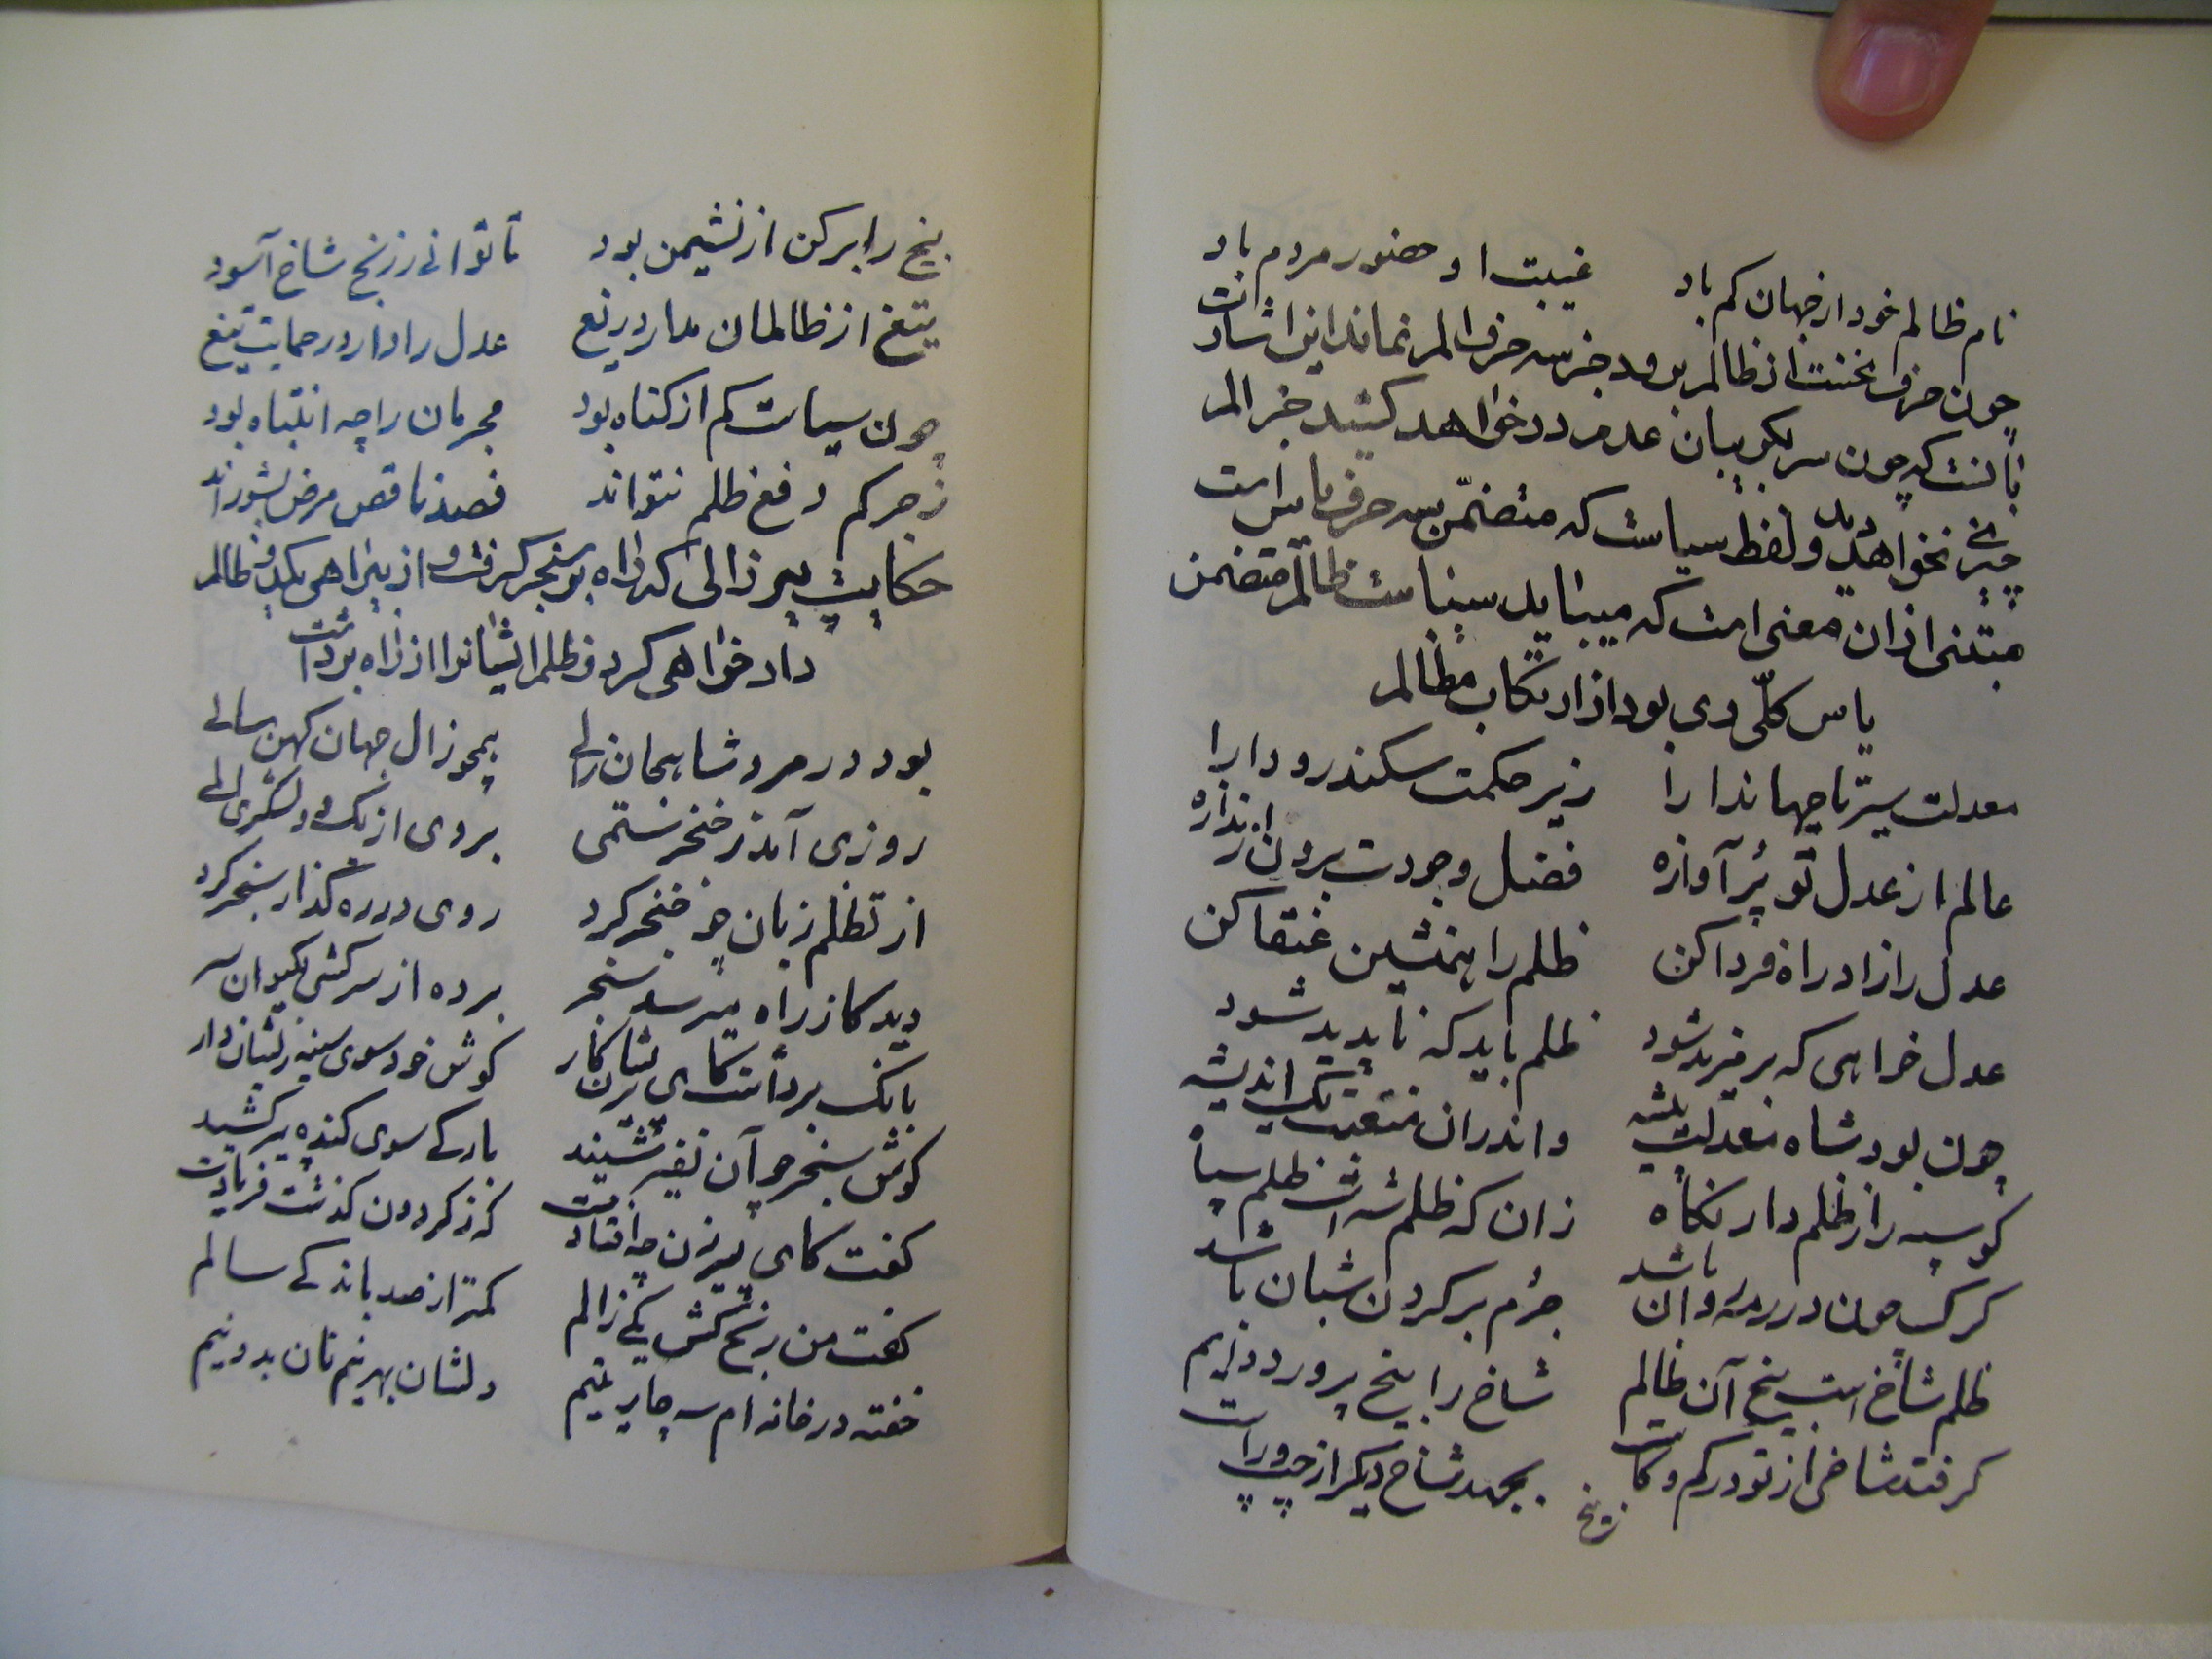 نام ظالم خود از جهان کم باد غیبت او حضور مردم باد
چون حرف نخست از ظالم برود جز سه حرف الم نماند این اشارت
بانست که چون سر بگریبان عدم در خواهد کشید جز الم
چیزی نخواهد دید و لفظ سیاست که متضمن سه حرف یاس است
مبتنی از ان معنی است که میباید سیاست ظالم متضمن
یاس کلی وی بود از ارتکاب مظالم
معدلت سیرتا جهاندارا زیر حکمت سکندر و دارا
عالم از عدل تو پر آوازه فضل وجودت برون ز اندازه
عدل را زاد راه فردا کن ظلم را همنشین عنقا کن
عدل خواهی که بر مزید شود ظلم باید که ناپدید شود
چون بود شاه معدلت پیشه واندران منقبت یک اندیشه
کو سپه را ز ظلم دار نگاه زان که ظلم شه است ظلم سپاه
کرک چون در رمه روان باشد جرم بر کردن شبان باشد
ظلم شاخ است بیخ آن ظالم شاخ را بیخ پرورد دایم
کر فتد شاخی از تو در کم و کاست بجهد شاخ دیکر از چپ و راست
بیخ
بیخ را بر کن از نشیمن بود تا توانی ز رنج شاخ آسود
تیغ از ظالمان مدار دریغ عدل را دار در حمایت تیغ
چون سیاست کم از کناه بود مجرمان را چه انتباه بود
زجر کم دفع ظلم نتواند فصد ناقص مرض بشوراند
حکایت پیر زالی که راه بر سنجر کرفت و از بیراهی یکدو ظالم
داد خواهی کرد و ظلم ایشانرا از راه برداشت
بود در مرو شاهجان زالی همچو زال جهان کهن سالی
روزی آمد ز خنجر ستمی بر وی از یک دو لشکری المی
از تظلم زبان چو خنجر کرد روی در ره کذار سنجر کرد
دید کاز راه میرسد سنجر برده از سرکشی بکیوان سر
بانک برداشت کای پریشان کار کوش خود سوی سینه ریشان دار
کوش سنجر چو آن نفیر شنید بارکی سوی کنده پیر کشید
کفت کای پیرزن چه افتادت که ز کردون کذشت فریادت
کفت من رنج کش یکی زالم کمتر از صد باندکی سالم
خفته در خانه ام سه چار یتیم دلشان بهر نیم نان بدو نیم